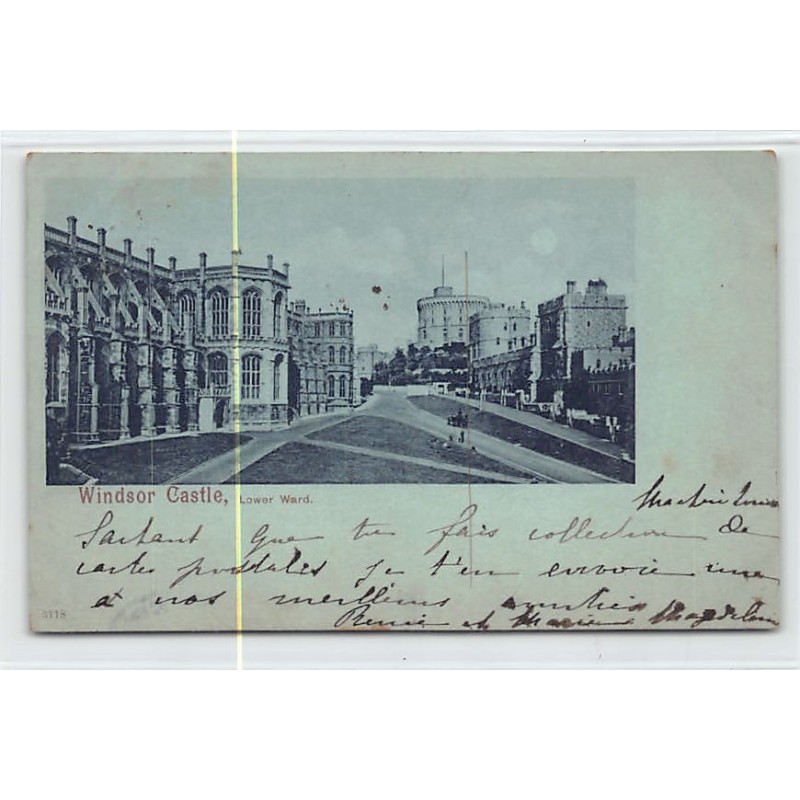 Windsor Castle, Lower Ward.
Sachant que tu fais collection de
cartes postales je t'en envoie une
et nos meilleurs amitiés
Renée et Marie Magdeleine
3118